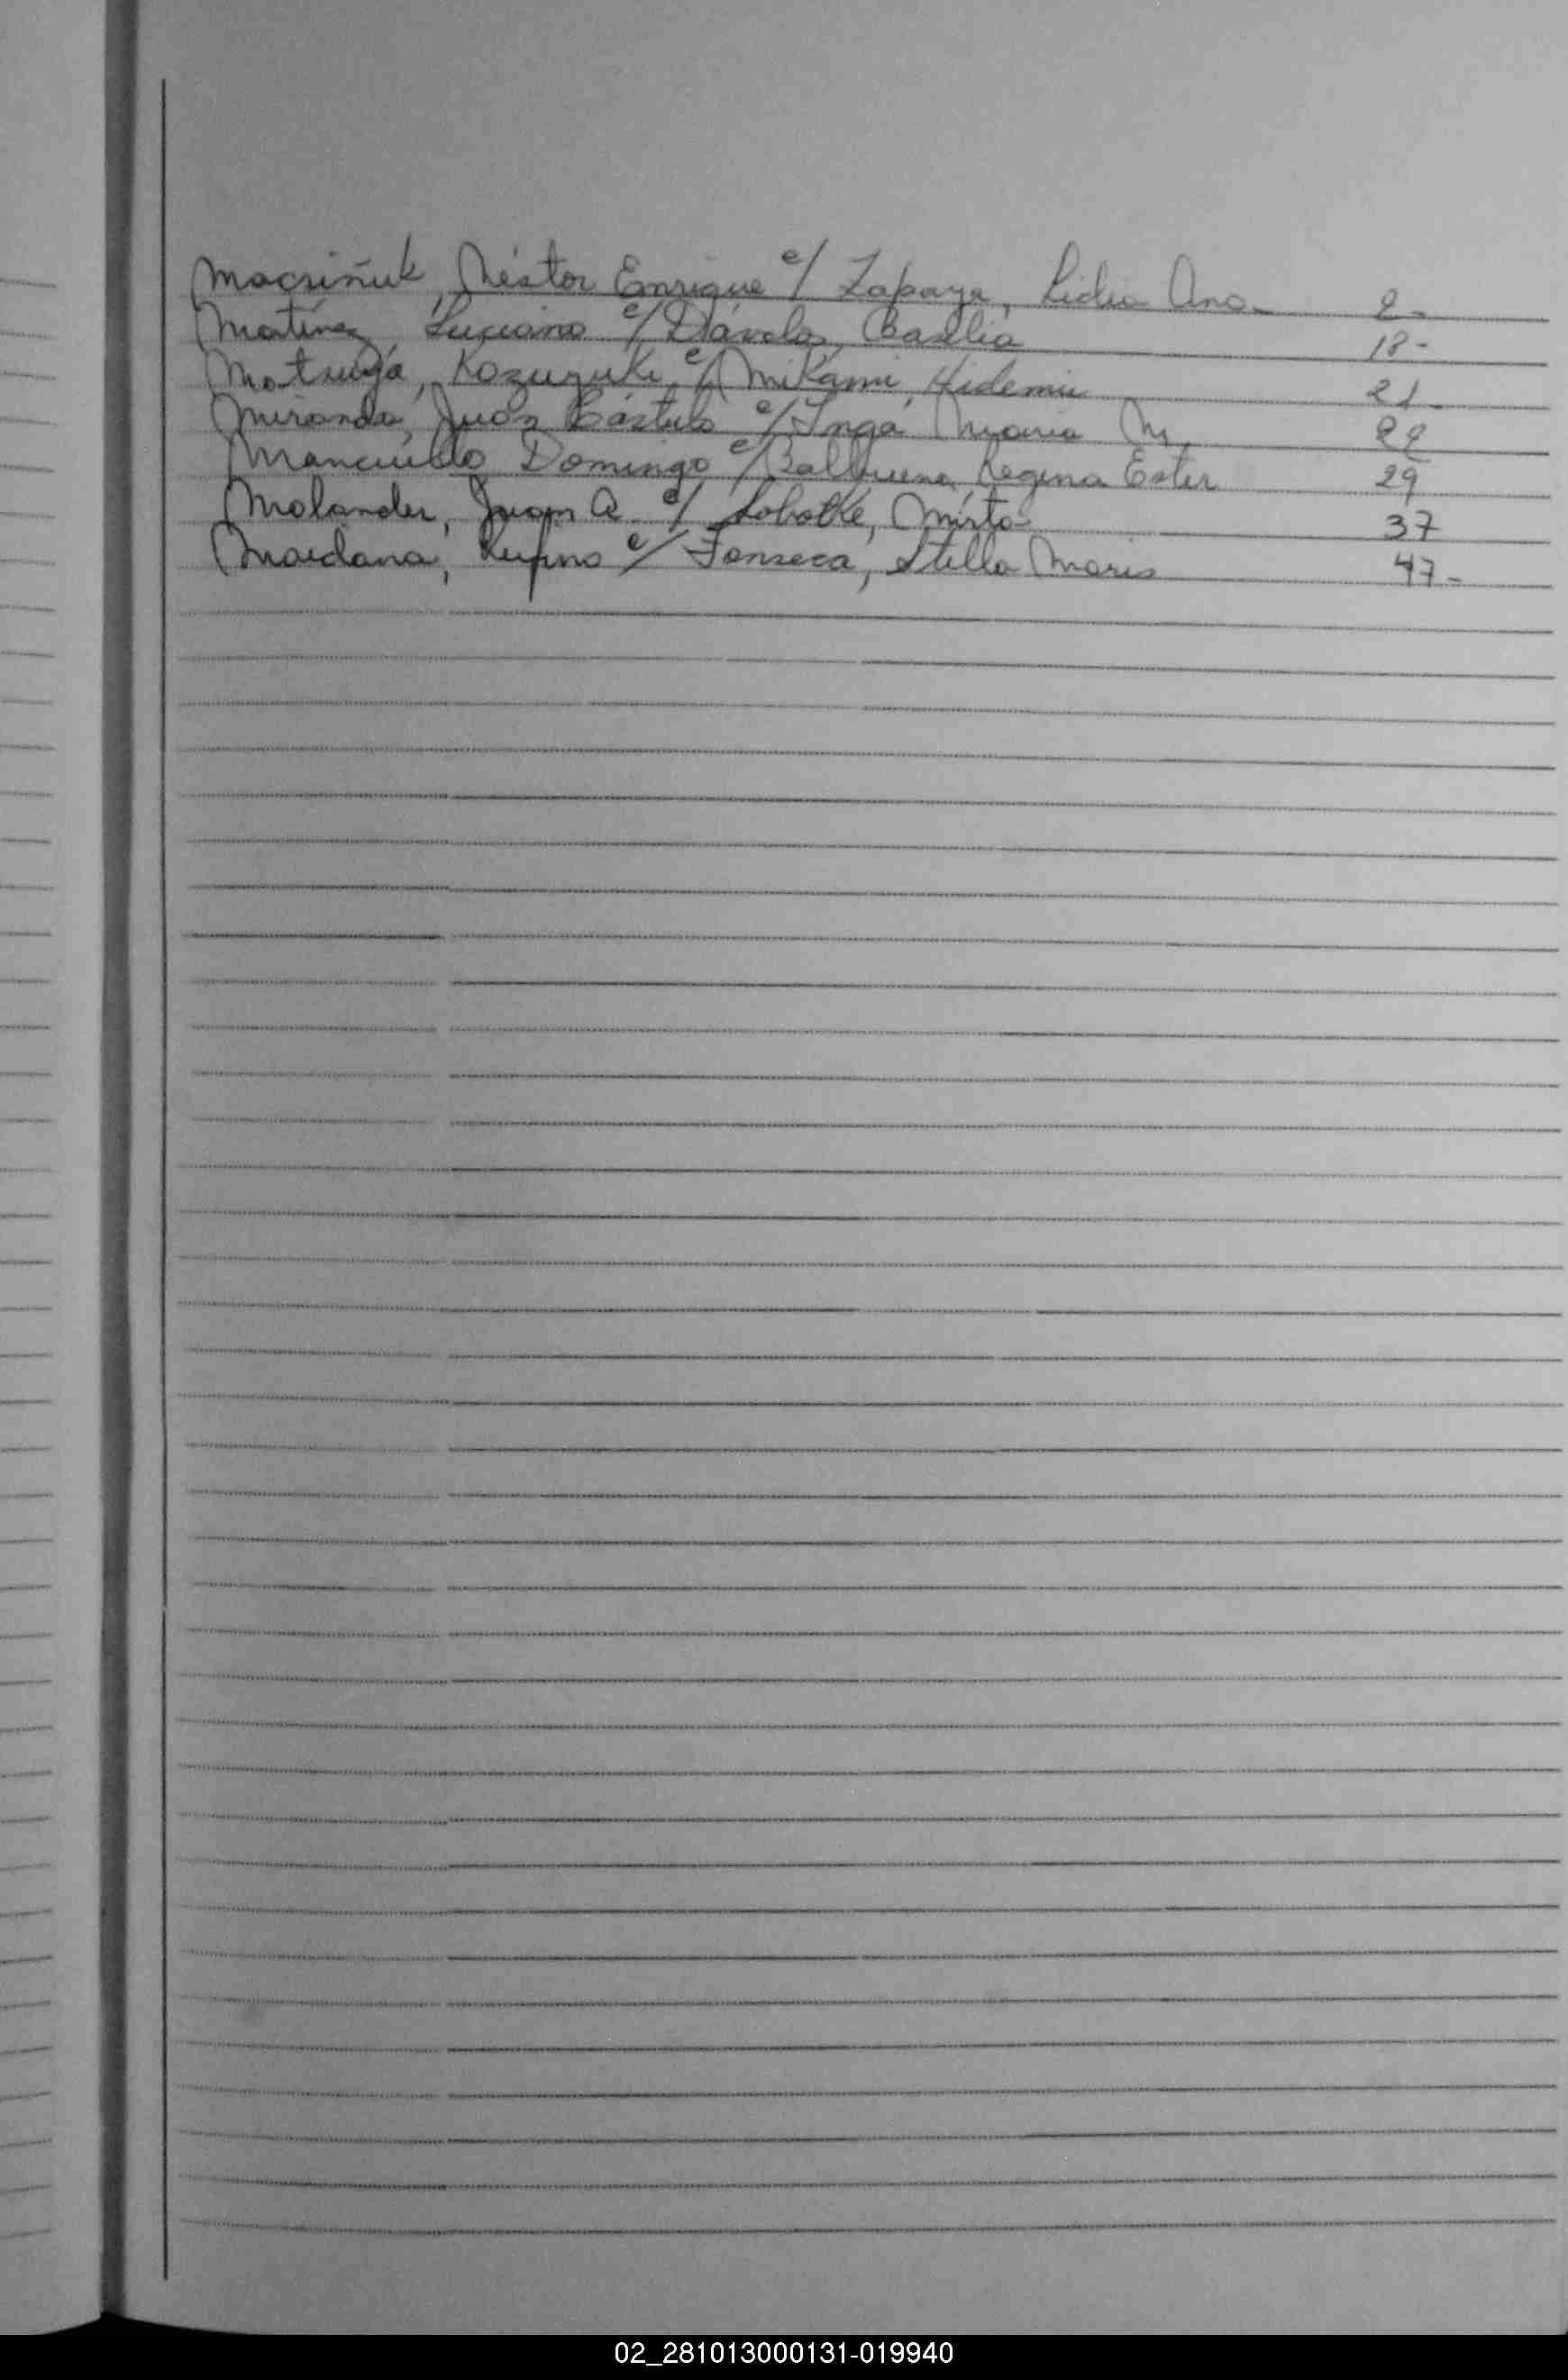 Macsiñuk, Néstor Enrique c/ Zapaya, Lidia Ana 2-
Martínez, Luciano c/ Dávalos, Basilia 18-
Matsuga, Kozuyuki c/ Mikami, Hidemi 21
Miranda, Juan Cástulo c/ Inga, Maria M. 22
Mancuello Domingo c/ Balbuena, Regina Ester 29
Molander, Juan A. c/ Mirta 37
Maidana, Rufino c/ Fonseca, Stella Maris 47-
02_281013000131-019940